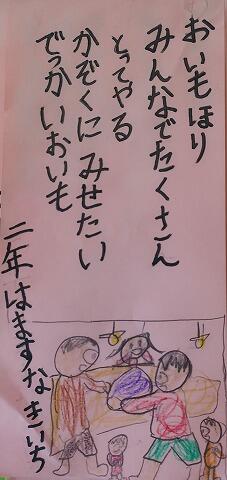 おいもほり
みんなでたくさん
とってやる
かぞくにみせたい
でっかいおいも
二年はますなきいち